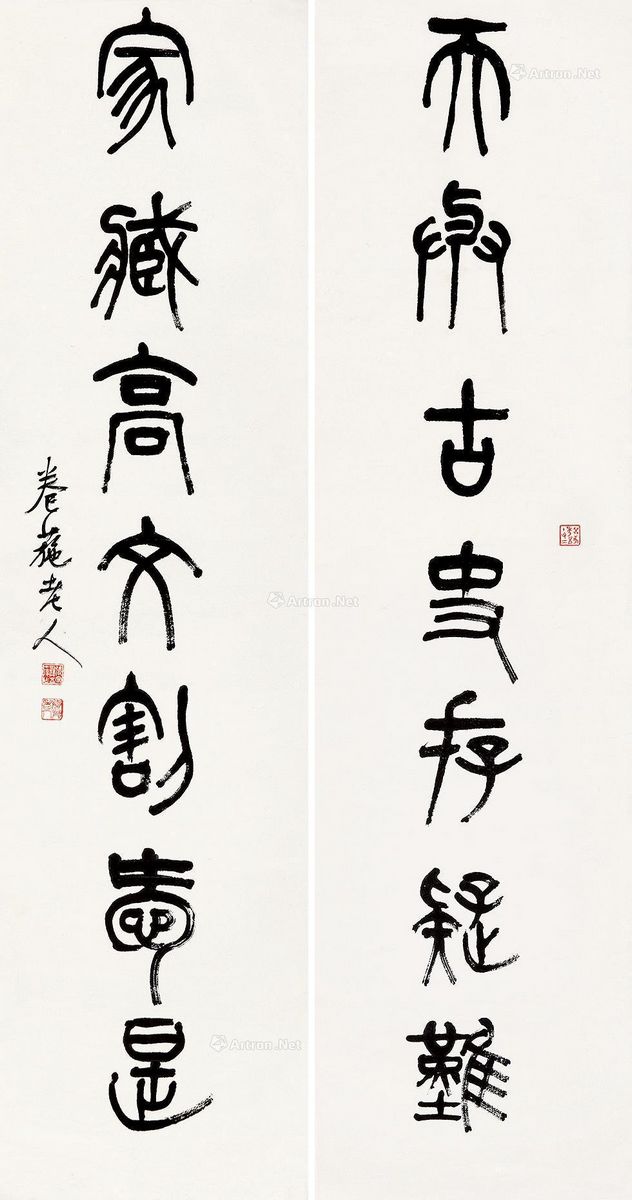 天與古史存疑難
家藏高文割愛是
卷葹老人
Artron.Net
Artron.Net
Artron.Net